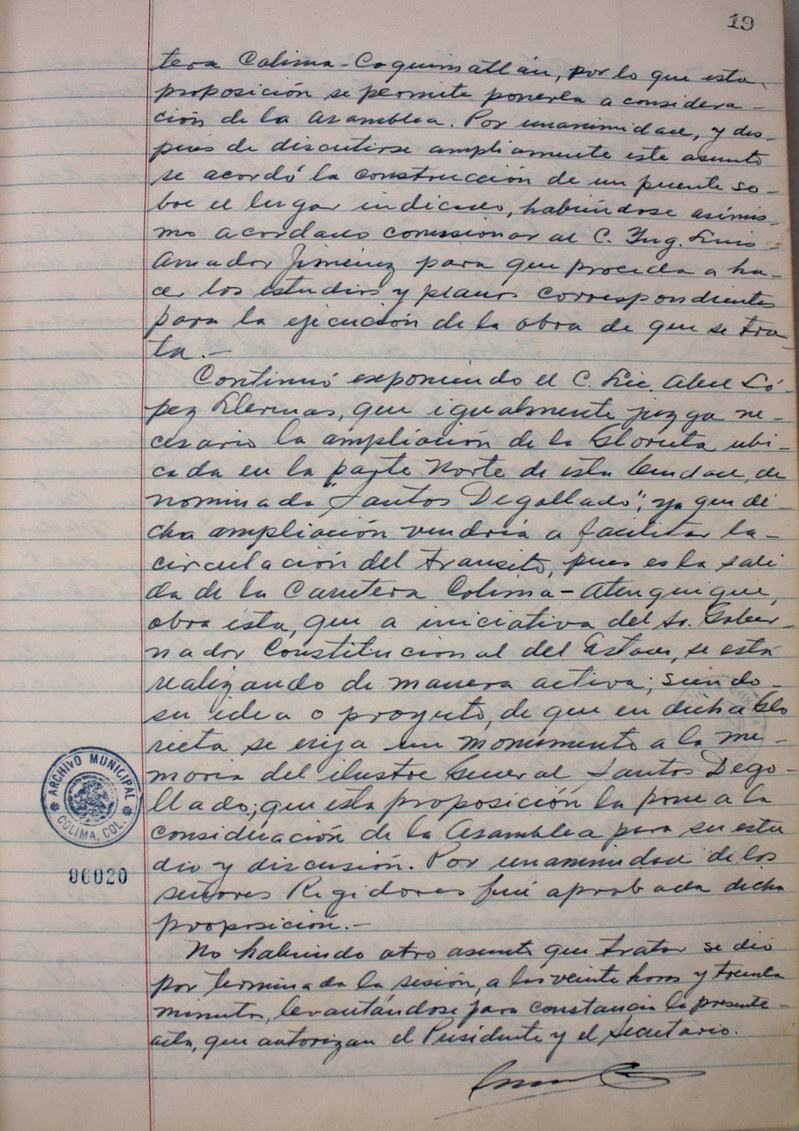 19
tera Colima-Coquimatlán, por lo que esta
proposición se permite ponerla a considera-
ción de la Asamblea. Por unanimidad, y des-
pués de discutirse ampliamente este asunto
se acordó la construcción de un puente so-
bre el lugar indicado, habiéndose asimis-
mo acordado comisionar al C. Ing. Luis
Amador Jiménez para que proceda a ha-
cer los estudios y planos correspondientes
para la ejecución de la obra de que se tra-
ta.-
Continuó exponiendo el C. Lic. Abel Ló-
pez Llerenas, que igualmente juzga ne-
cesario la ampliación de la Glorieta ubi-
cada en la parte Norte de esta Ciudad, de
nominada "Santos Degollado", ya que di-
cha ampliación vendría a facilitar la-
circulación del transito, pues es la sali
da de la Carretera Colima-Atenquique,
obra ésta, que a iniciativa del Sr. Gober-
nador Constitucional del Estado, se está
realizando de manera activa; siendo-
su idea o proyecto, de que en dicha Glo
rieta se erija un monumento a la me-
moria del ilustre General Santos Dego-
llado; que esta proposición la pone a la
consideración de la Asamblea para su estu
dio y discusión. Por unanimidad de los
señores Regidores fué aprobada dicha
proposición.-
No habiendo otro asunto que tratar se dió
por terminada la sesión, a las veinte horas y treinta
minutos, levantándose para constancia la presente-
acta, que autorizan el Presidente y el Secretario.
ARCHIVO MUNICIPAL
COLIMA, COL.
00020